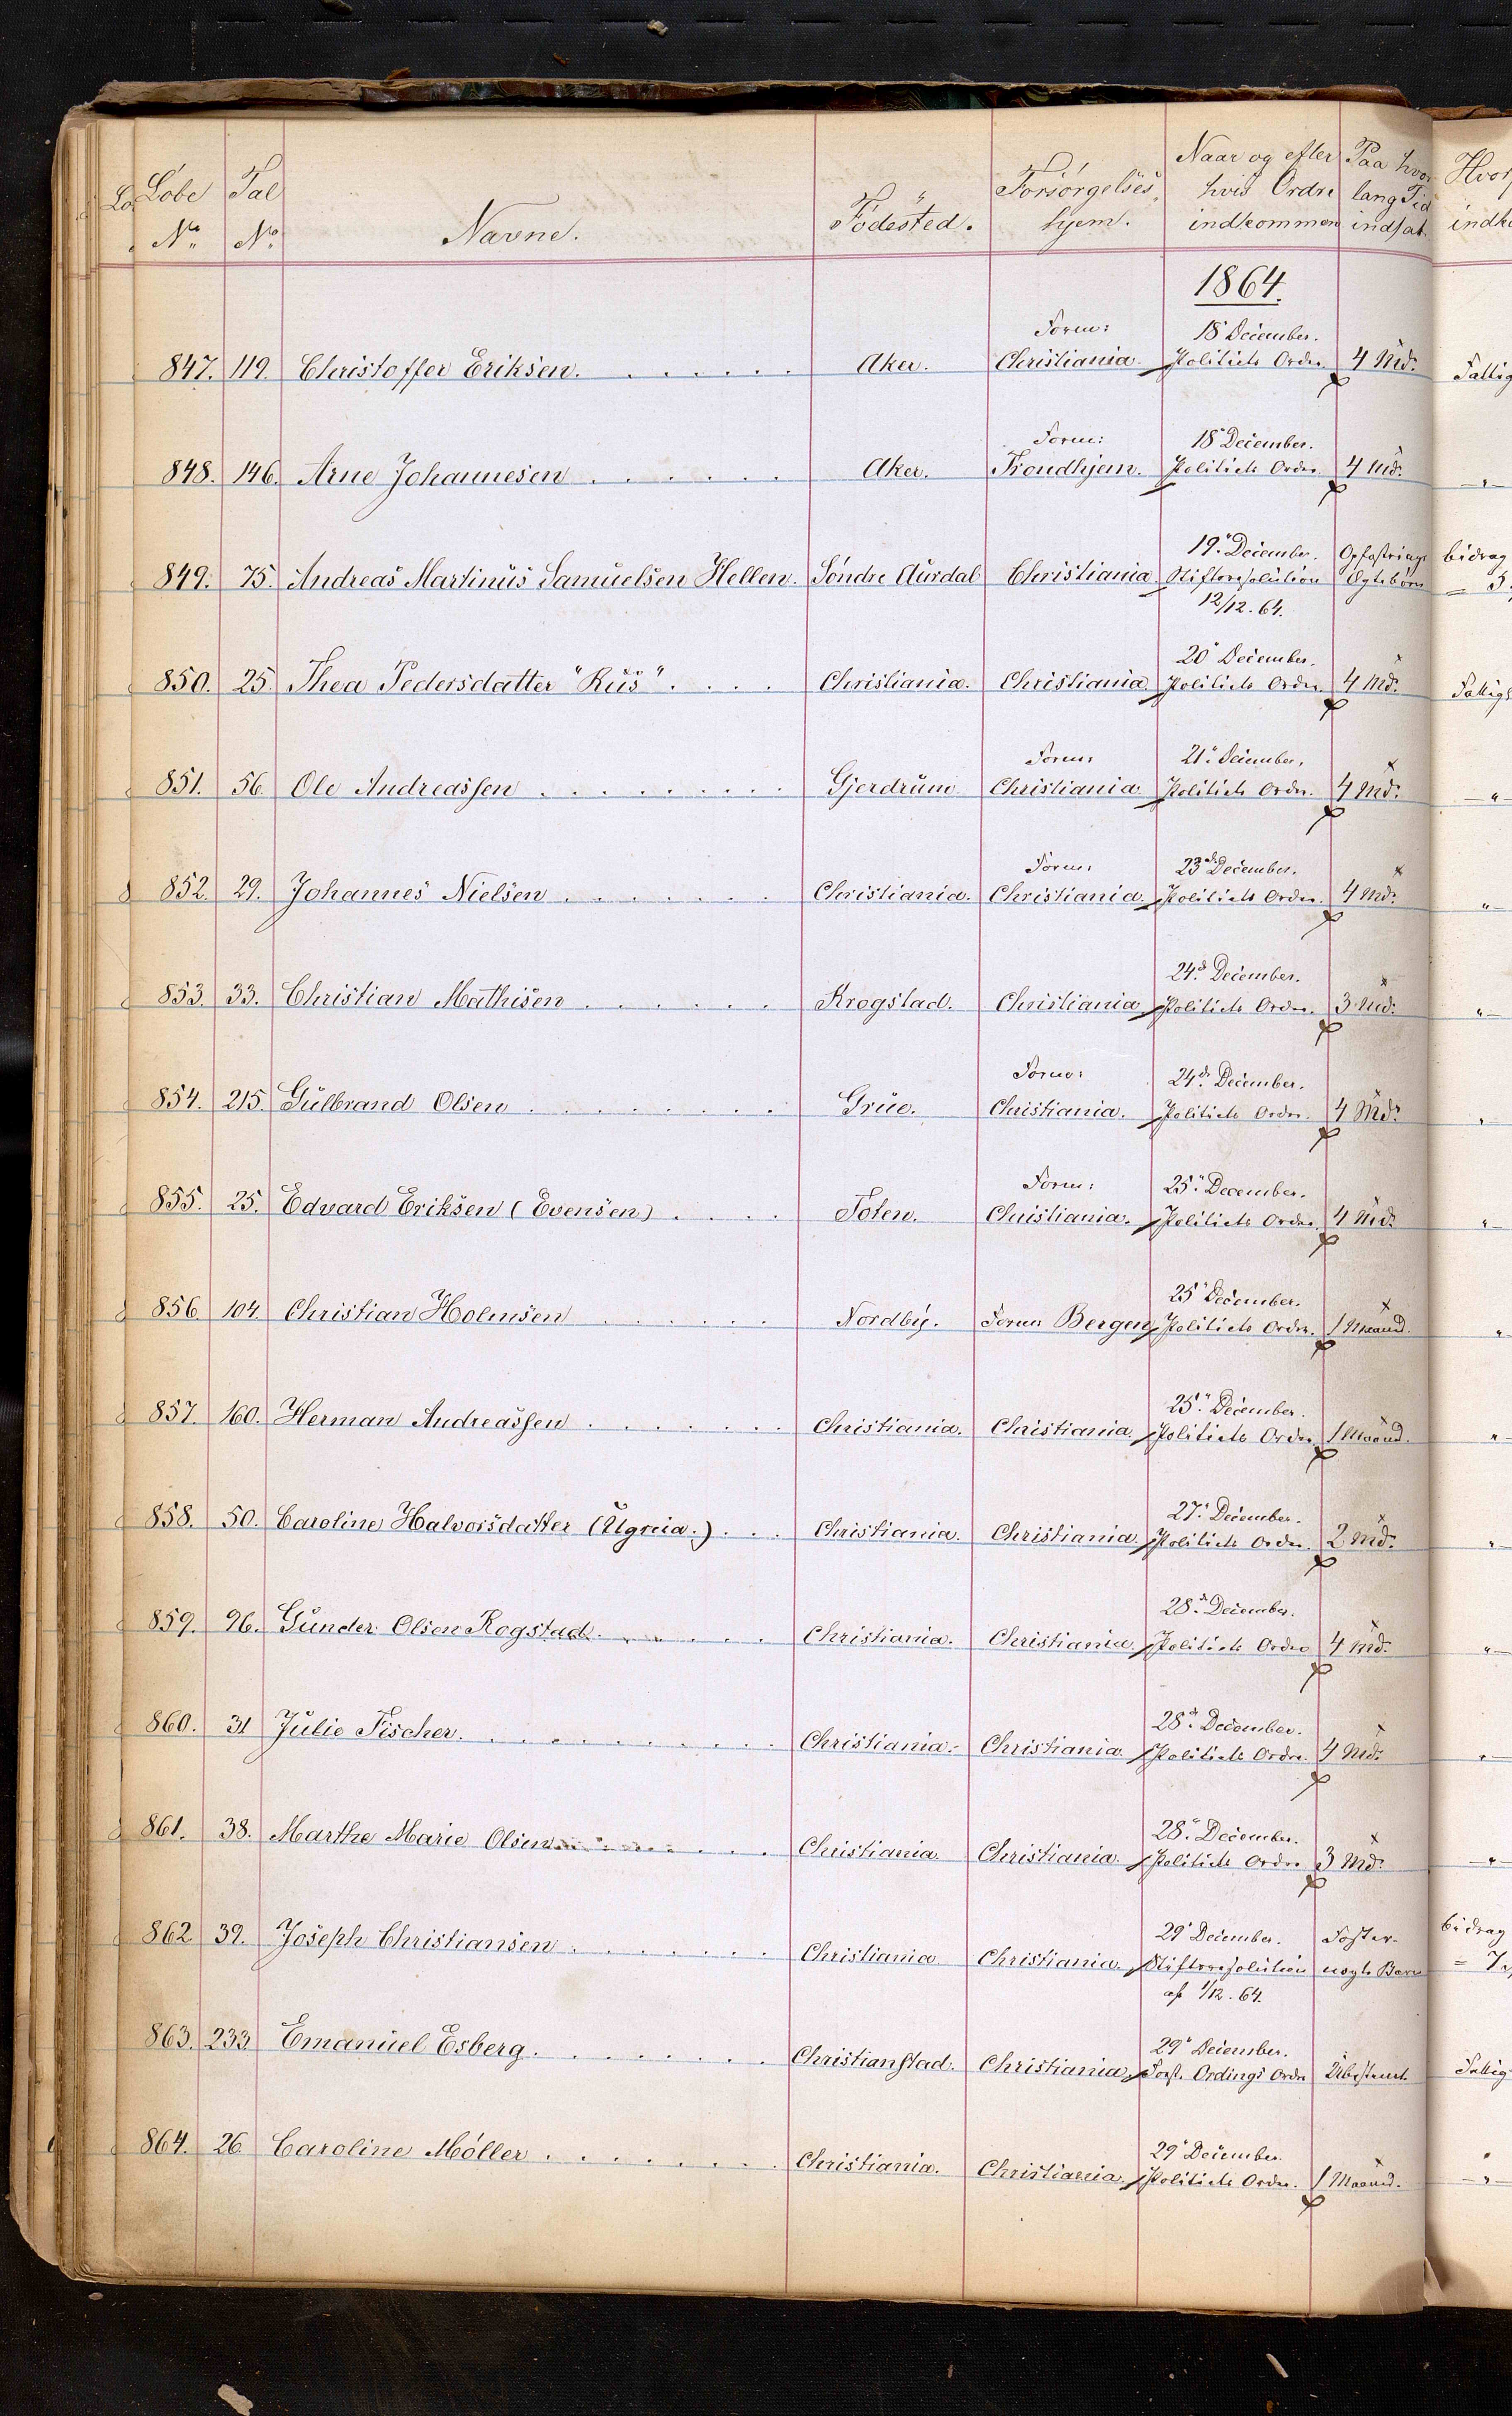 Løbe No. Tal No. Navne. Fødested. Forsørgelses hjem. Naar og efter hvis Ordre indkommen Paa hvor lang Tid indsat. Hvor indko
1864.
Form: 18 December.
847. 119. Christoffer Eriksen. Aker. Christiania. Politiets Ordre. 4 Md. Fattig
Form: 18 December.
848. 146. Arne Johannesen Aker. Trondhjem. Politiets Ordre. 4 Md. - " -
19. December. Opfostrings bidrag
849. 75. Andreas Martinus Samuelsen Hellen. Søndre Aurdal Christiania Stiftsresolution Ægtebørn
12/12. 64.
20 December.
850. 25. Thea Pedersdatter "Rus" Christiania. Christiania Politiets Ordre. 4 Md. Fattig
Form: 21. December.
851. 56. Ole Andreassen Gjerdrum Christiania. Politiets Ordre. 4 Md. - " -
Form: 23d December.
852. 29. Johannes Nielsen Christiania. Christiania. Politiets Ordre. 4 Md. " -
24d. December.
853. 33. Christian Mathisen Krogstad. Christiania Politiets Ordre. 3 Md. " -
Form: 24d. December.
854. 215. Gulbrand Olsen Grue. Christiania. Politiets Ordre. 4 Md.
Form: 25. December.
855. 25. Edvard Eriksen (Evensen) Toten. Christiania. Politiets Ordre. 4 Md. " -
25 December.
856. 104. Christian Holmsen Nordby. Form: Bergen Politiets Ordre. 1 Maaned. "
25. December.
857. 160. Herman Andreassen Christiania. Christiania. Politiets Ordre. 1 Maaned. " -
27. December.
858. 50. Caroline Halvorsdatter Christiania. Christiania. Politiets Ordre. 2 Md. "
28. December.
859. 96. Gunder Olsen Rogstad. Christiania. Christiania. Politiets Ordre 4 Md. " -
28. December.
860. 31 Julie Fischer. Christiania. Christiania. Politiets Ordre. 4 Md. "
28. December.
861. 38. Marthe Marie Olsen Christiania. Christiania. Politiets Ordre 3 Md. - " -
29 December. Foster- bidrag
862 39. Joseph Christiansen Christiania Christiania. Stiftsresolution uægte Barn
af 1/12. 64.
29 December.
863. 233 Emanuel Esberg. Christianstad. Christiania. Ordre Ubestemt Fattig
29 December
864. 26. Caroline Møller Christiania. Christiania. Politiets Ordre. 1 Maaned. - " -